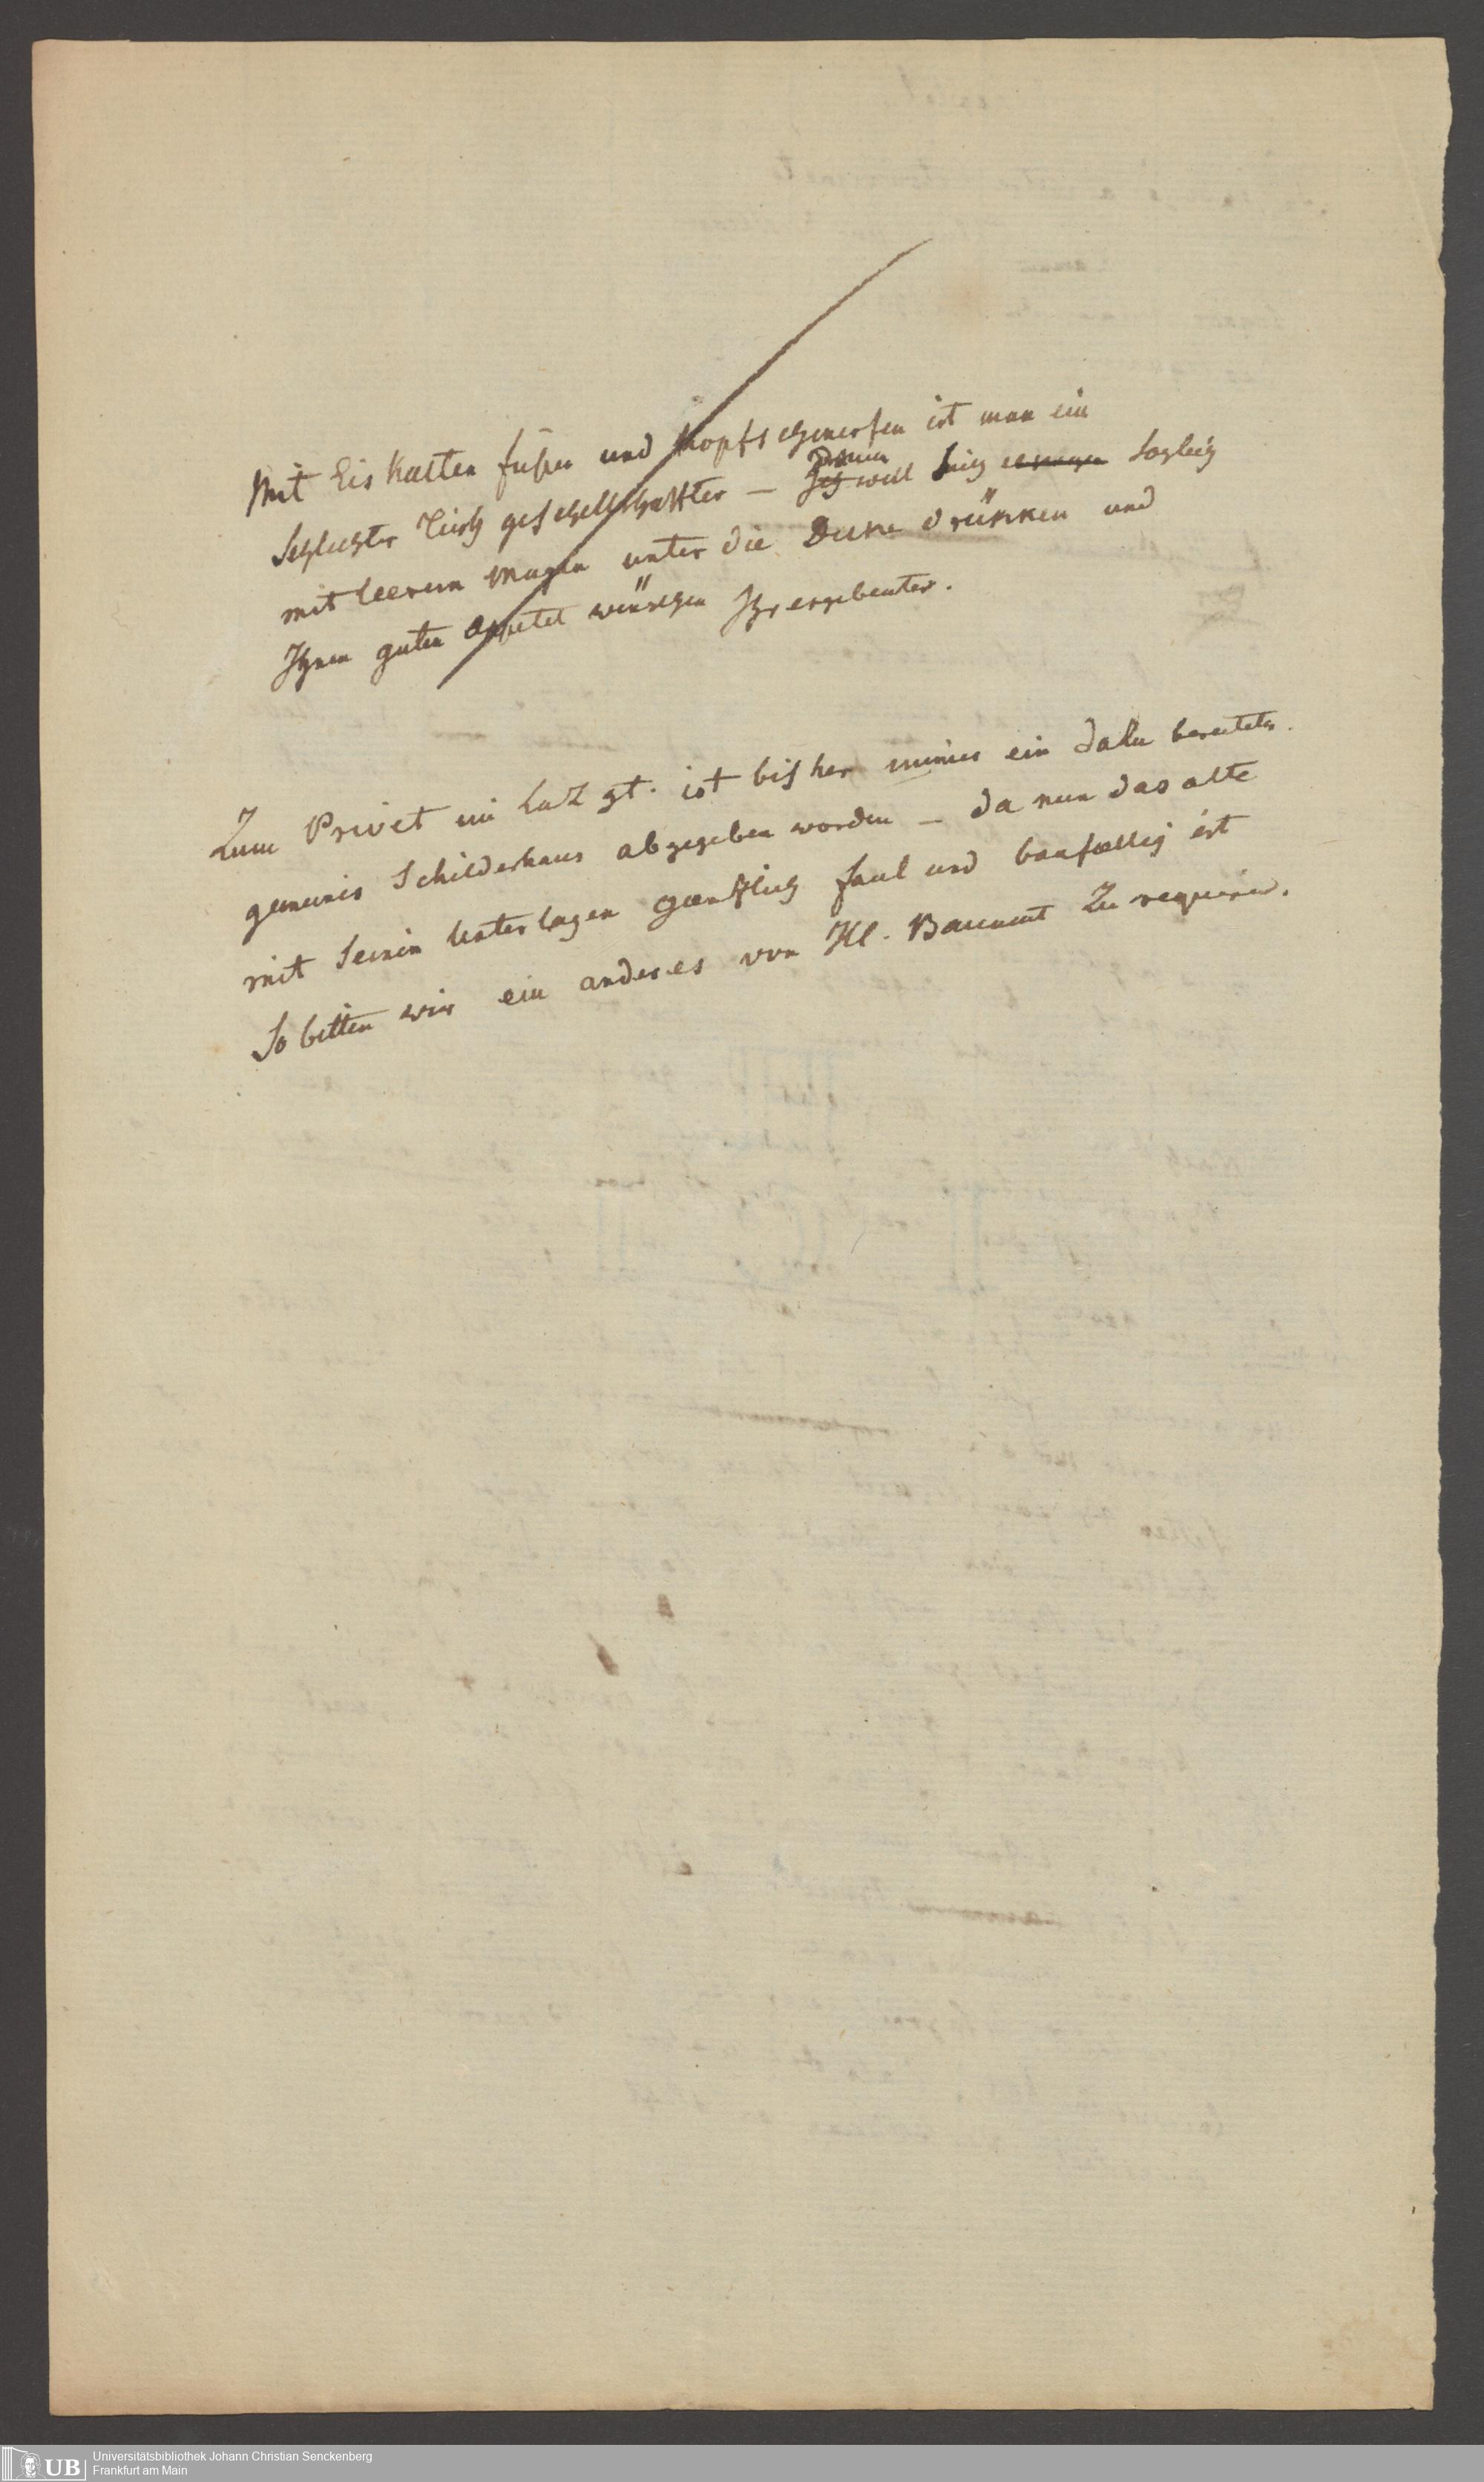 Mit Eis Kalten füßen und Kopfschmerfen ist man ein
Schlechter Tisch geschellschaffter — Drum
Ich will sich sogleich
mit leerem Magen unter die Decke drücken und
Ihnen guten Appetit wünschen Ihr ergebenter.
Zum Privet im Laz gt. ist bisher immer ein dazu bereitetes
gemeines Schilderhaus abgegeben worden — da nun das alte
mit seinen Unterlagen gaenzlich faul und baufaellig ist
So bitten wir ein anderes vom Hl. Bauamt zu requirire.
UB
Universitätsbibliothek Johann Christian Senckenberg
Frankfurt am Main